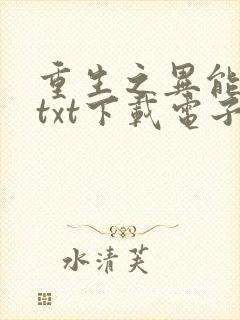 重生之異能
txt下載電子
水清芙